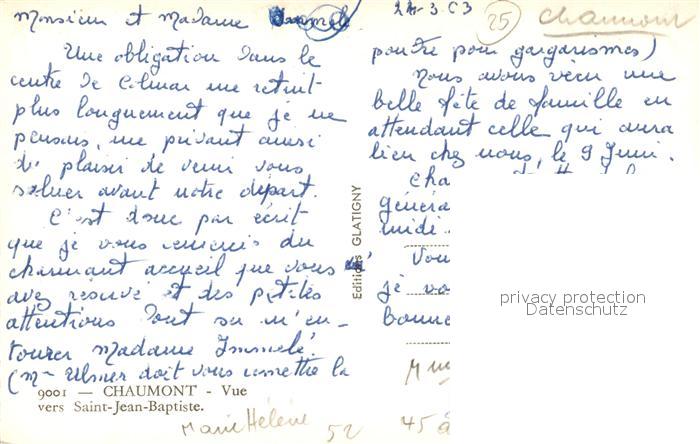 Monsieur et Madame
Une obligation dans le
centre de Colmar me retint
plus longuement que je ne
pensais, me privant ainsi
du plaisir de venir vous
saluer avant notre départ.
C'est donc par écrit
que je vous remercie du
charmant accueil que vous
avez réservé et des petites
attentions dont su m'en-
tourer Madame Immelé.
(Me Ulmer doit vous remettre la
9001 — CHAUMONT - Vue
vers Saint-Jean-Baptiste.
Marie Hélène 52
Editions GLATIGNY
24.3.63
25
Chaumont
poudre pour gargarismes)
Nous avons vécu une
belle fête de famille en
attendant celle qui aura
lieu chez nous, le 9 Juin.
Cha
généra
midi
Vou
je vo
bonne
45 a
privacy protection
Datenschutz